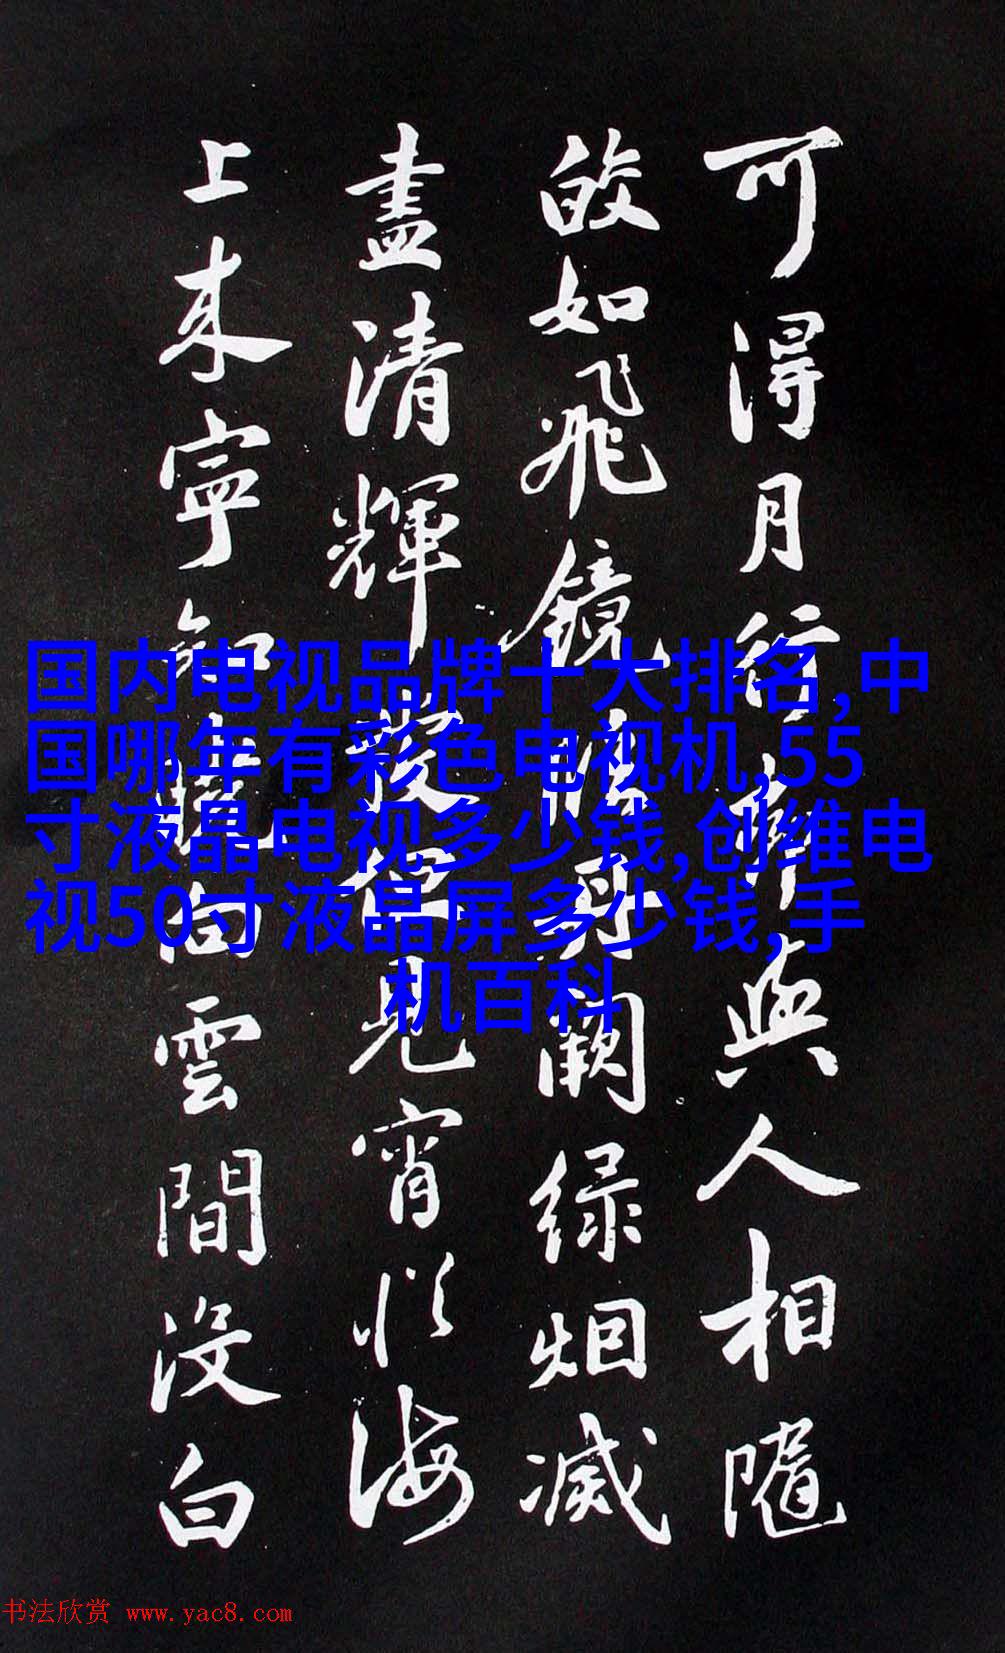 可得月行却與人相隨
皎如飛鏡臨丹闕緑烟滅
盡清輝發但見宵從海
上来寧知曉向雲間没白
国内电视品牌十大排名,中
国哪年有彩色电视机,55
寸液晶电视多少钱,创维电
视50寸液晶屏多少钱,手
机百科
书法欣赏 www.yac8.com